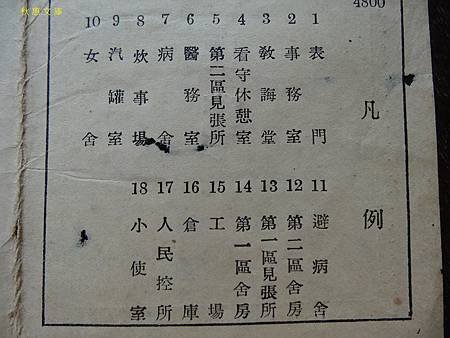 秋惠文庫
4800
凡例
1 表門
2 事務室
3 教誨堂
4 看守休憩室
5 第二區見張所
6 醫務室
7 病舍
8 炊事場
9 汽罐室
10 女舍
11 避病舍
12 第二區舍房
13 第一區見張所
14 第一區舍房
15 工場
16 倉庫
17 人民控所
18 小使室